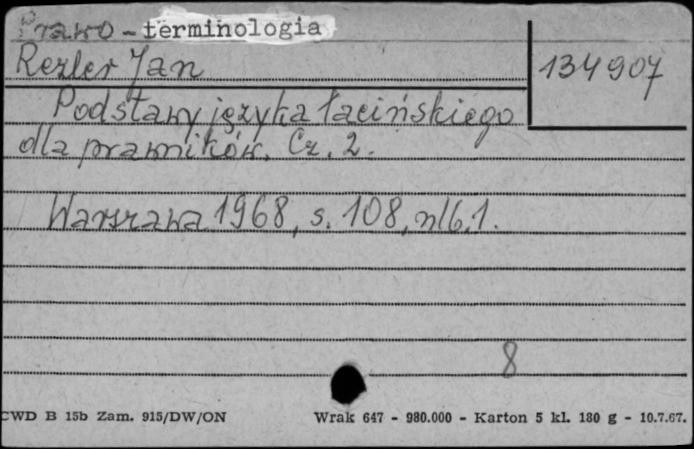 Prawo - terminologia
Rezler Jan
134907
Podstawy języka łacińskiego
dla prawników. Cz. 2.
Warszawa 1968, s. 108, nlb. 1.
8
CWD B 15b Zam. 915/DW/ON Wrak 647 - 980.000 - Karton 5 kl. 180 g - 10.7.67.